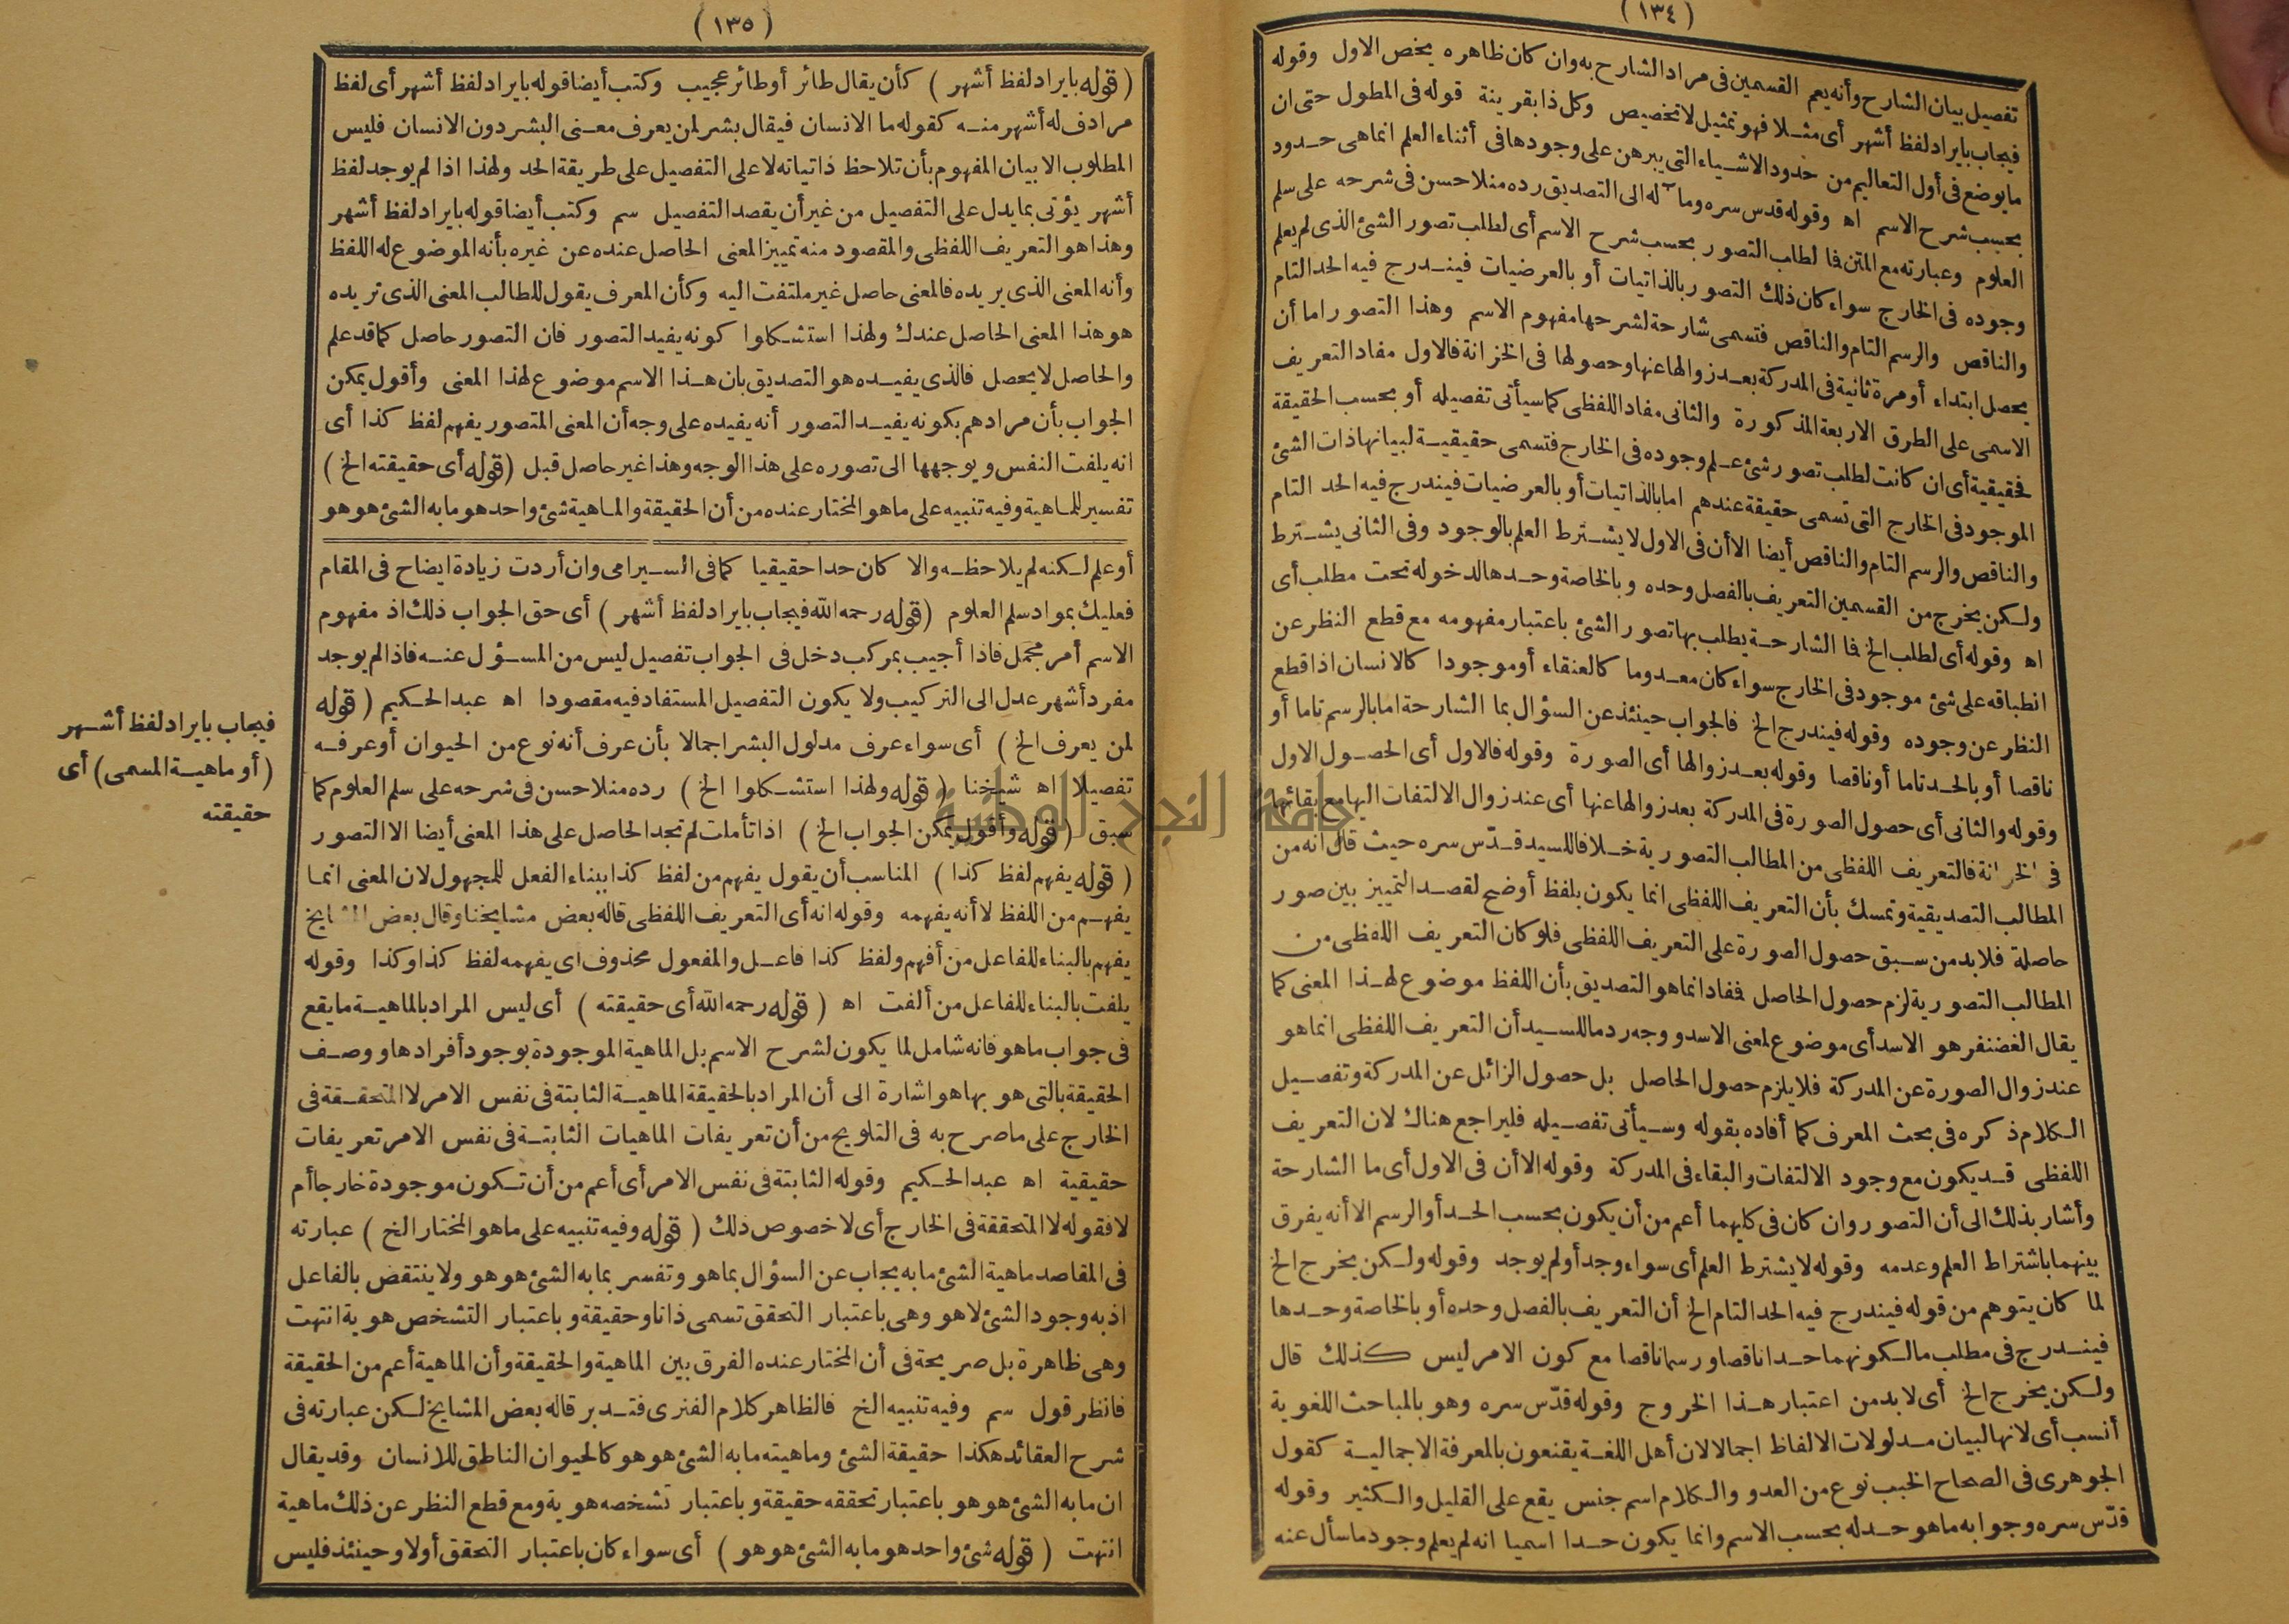 (١٣٤)
تفصيل بيان الشارح وأنه يعم القسمين فى مراد الشارح به وان كان ظاهره يخص الاول وقوله
فيجاب بايراد لفظ أشهر أى مثلا فهو تمثيل لا تخصيص وكل ذا بقرينة قوله فى المطول حتى ان
ما يوضع فى أول التعاليم من حدود الاشياء التى يبرهن على وجودها فى أثناء العلم انما هى حدود
بحسب شرح الاسم اه وقوله قدس سره ومآله الى التصديق رده منلا حسن فى شرحه على سلم
العلوم وعبارته مع المتن فما لطلب التصور بحسب شرح الاسم أى لطلب تصور الشئ الذى لم يعلم
وجوده فى الخارج سواء كان ذلك التصور بالذاتيات أو بالعرضيات فيندرج فيه الحد التام
والناقص والرسم التام والناقص فتسمى شارحة لشرحها مفهوم الاسم وهذا التصور اما أن
يحصل ابتداء أو مرة ثانية فى المدركة بعد زوالها عنها وحصولها فى الخزانة فالاول مفاد التعريف
الاسمى على الطرق الاربعة المذكورة والثانى مفاد اللفظى كما سيأتى تفصيله أو بحسب الحقيقة
فحقيقية أى ان كانت لطلب تصور شئ علم وجوده فى الخارج فتسمى حقيقية لبيانها ذات الشئ
الموجود فى الخارج التى تسمى حقيقة عندهم اما بالذاتيات أو بالعرضيات فيندرج فيه الحد التام
والناقص والرسم التام والناقص أيضا الا أن فى الاول لا يشترط العلم بالوجود وفى الثانى يشترط
ولكن يخرج من القسمين التعريف بالفصل وحده وبالخاصة وحدها لدخوله تحت مطلب أى
اه وقوله أى لطلب الخ فما الشارحة يطلب بها تصور الشئ باعتبار مفهومه مع قطع النظر عن
انطباقه على شئ موجود فى الخارج سواء كان معدوما كالعنقاء أو موجودا كالانسان اذا قطع
النظر عن وجوده وقوله فيندرج الخ فالجواب حينئذ عن السؤال بما الشارحة اما بالرسم تاما أو
ناقصا أو بالحد تاما أو ناقصا وقوله بعد زوالها أى الصورة وقوله فالاول أى الحصول الاول
وقوله والثانى أى حصول الصورة فى المدركة بعد زوالها عنها أى عند زوال الالتفات اليها مع بقائها
فى الخزانة فالتعريف اللفظى من المطالب التصورية خلافا للسيد قدّس سره حيث قال انه من
المطالب التصديقية وتمسك بأن التعريف اللفظى انما يكون بلفظ أوضح لقصد التمييز بين صور
حاصلة فلا بد من سبق حصول الصورة على التعريف اللفظى فلو كان التعريف اللفظى من
المطالب التصورية لزم حصول الحاصل فمفاد انما هو التصديق بأن اللفظ موضوع لهذا المعنى كما
يقال الغضنفر هو الاسد أى موضوع لمعنى الاسد ووجه رد ما للسيد أن التعريف اللفظى انما هو
عند زوال الصورة عن المدركة فلا يلزم حصول الحاصل بل حصول الزائل عن المدركة وتفصيل
الكلام ذكره فى بحث المعرف كما أفاده بقوله وسيأتى تفصيله فليراجع هناك لان التعريف
اللفظى قد يكون مع وجود الالتفات والبقاء فى المدركة وقوله الا أن فى الاول أى ما الشارحة
وأشار بذلك الى أن التصور وان كان فى كليهما أعم من أن يكون بحسب الحد أو الرسم الا أنه يفرق
بينهما باشتراط العلم وعدمه وقوله لا يشترط العلم أى سواء وجد أو لم يوجد وقوله ولكن يخرج الخ
لما كان يتوهم من قوله فيندرج فيه الحد التام الخ أن التعريف بالفصل وحده أو بالخاصة وحدها
فيندرج فى مطلب ما لكونهما حدا ناقصا ورسما ناقصا مع كون الامر ليس كذلك قال
ولكن يخرج الخ أى لا بد من اعتبار هذا الخروج وقوله قدّس سره وهو بالمباحث اللغوية
أنسب أى لانها لبيان مدلولات الالفاظ اجمالا لان أهل اللغة يقنعون بالمعرفة الاجمالية كقول
الجوهرى فى الصحاح الخبب نوع من العدو والكلام اسم جنس يقع على القليل والكثير وقوله
قدّس سره وجوابه ما هو حد له بحسب الاسم وانما يكون حدا اسميا انه لم يعلم وجود ما سأل عنه
(١٣٥)
(قوله بايراد لفظ أشهر) كأن يقال طائر أو طائر عجيب وكتب أيضا قوله بايراد لفظ أشهر أى لفظ
مرادف له أشهر منه كقوله ما الانسان فيقال بشر لمن يعرف معنى البشر دون الانسان فليس
المطلوب الا بيان المفهوم بأن تلاحظ ذاتياته لا على التفصيل على طريقة الحد ولهذا اذا لم يوجد لفظ
أشهر يؤتى بما يدل على التفصيل من غير أن يقصد التفصيل سم وكتب أيضا قوله بايراد لفظ أشهر
وهذا هو التعريف اللفظى والمقصود منه تمييز المعنى الحاصل عنده عن غيره بأنه الموضوع له اللفظ
وأنه المعنى الذى يريده فالمعنى حاصل غير ملتفت اليه وكأن المعرف يقول للطالب المعنى الذى تريده
هو هذا المعنى الحاصل عندك ولهذا استشكلوا كونه يفيد التصور فان التصور حاصل كما قد علم
والحاصل لا يحصل فالذى يفيده هو التصديق بان هذا الاسم موضوع لهذا المعنى وأقول يمكن
الجواب بأن مرادهم بكونه يفيد التصور أنه يفيده على وجه أن المعنى المتصور يفهم لفظ كذا أى
انه يلفت النفس ويوجهها الى تصوره على هذا الوجه وهذا غير حاصل قبل (قوله أى حقيقته الخ)
تفسير للماهية وفيه تنبيه على ما هو المختار عنده من أن الحقيقة والماهية شئ واحد هو ما به الشئ هو هو
أو علم لكنه لم يلاحظه والا كان حدا حقيقيا كما فى السيرامى وان أردت زيادة ايضاح فى المقام
فعليك بمواد سلم العلوم (قوله رحمه الله فيجاب بايراد لفظ أشهر) أى حق الجواب ذلك اذ مفهوم
الاسم أمر مجمل فاذا أجيب بمركب دخل فى الجواب تفصيل ليس من المسؤل عنه فاذا لم يوجد
مفرد أشهر عدل الى التركيب ولا يكون التفصيل المستفاد فيه مقصودا اه عبد الحكيم (قوله
لمن يعرف الخ) أى سواء عرف مدلول البشر اجمالا بأن عرف أنه نوع من الحيوان أو عرفه
تفصيلا اه شيخنا (قوله ولهذا استشكلوا الخ) رده منلا حسن فى شرحه على سلم العلوم كما
سبق (قوله وأقول يمكن الجواب الخ) اذا تأملت لم تجد الحاصل على هذا المعنى أيضا الا التصور
(قوله يفهم لفظ كذا) المناسب أن يقول يفهم من لفظ كذا ببناء الفعل للمجهول لان المعنى انما
يفهم من اللفظ لا أنه يفهمه وقوله انه أى التعريف اللفظى قاله بعض مشايخنا وقال بعض المشايخ
يفهم بالبناء للفاعل من أفهم ولفظ كذا فاعل والمفعول محذوف أى يفهمه لفظ كذا وكذا وقوله
يلفت بالبناء للفاعل من ألفت اه (قوله رحمه الله أى حقيقته) أى ليس المراد بالماهية ما يقع
فى جواب ما هو فانه شامل لما يكون لشرح الاسم بل الماهية الموجودة بوجود أفرادها ووصف
الحقيقة بالتى هو بها هو اشارة الى أن المراد بالحقيقة الماهية الثابتة فى نفس الامر لا المتحققة فى
الخارج على ما صرح به فى التلويح من أن تعريفات الماهيات الثابتة فى نفس الامر تعريفات
حقيقية اه عبد الحكيم وقوله الثابتة فى نفس الامر أى أعم من أن تكون موجودة خارجا أم
لا فقوله لا المتحققة فى الخارج أى لا خصوص ذلك (قوله وفيه تنبيه على ما هو المختار الخ) عبارته
فى المقاصد ماهية الشئ ما به يجاب عن السؤال بما هو وتفسر بما به الشئ هو هو ولا ينتقض بالفاعل
اذ به وجود الشئ لا هو وهى باعتبار التحقق تسمى ذاتا وحقيقة وباعتبار التشخص هوية انتهت
وهى ظاهرة بل صريحة فى أن المختار عنده الفرق بين الماهية والحقيقة وأن الماهية أعم من الحقيقة
فانظر قول سم وفيه تنبيه الخ فالظاهر كلام الفنرى فتدبر قاله بعض المشايخ لكن عبارته فى
شرح العقائد هكذا حقيقة الشئ وماهيته ما به الشئ هو هو كالحيوان الناطق للانسان وقد يقال
ان ما به الشئ هو هو باعتبار تحققه حقيقة وباعتبار تشخصه هوية ومع قطع النظر عن ذلك ماهية
انتهت (قوله شئ واحد هو ما به الشئ هو هو) أى سواء كان باعتبار التحقق أولا وحينئذ فليس
فيجاب بايراد لفظ أشهر
(أو ماهية المسمى) أى
حقيقته
جامعة النجاح الوطنية